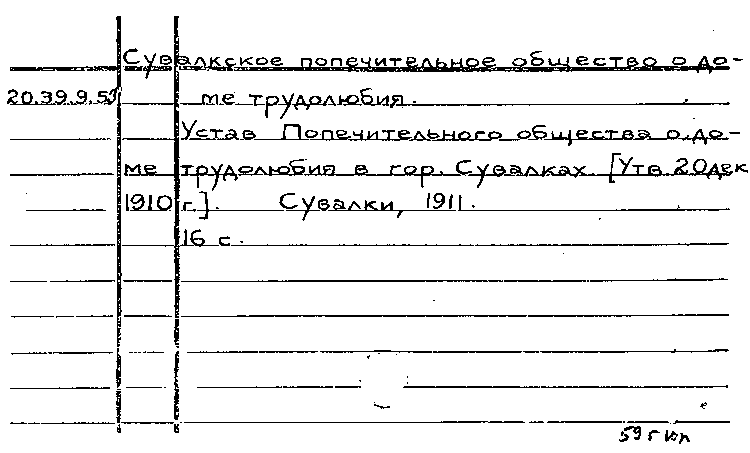 Сувалкское попечительное общество о до-
20.39.9.53 ме трудолюбия.
Устав Попечительного общества о до-
ме трудолюбия в гор. Сувалках. [Утв. 20 дек
1910 г.]. Сувалки, 1911.
16 с.
59 г